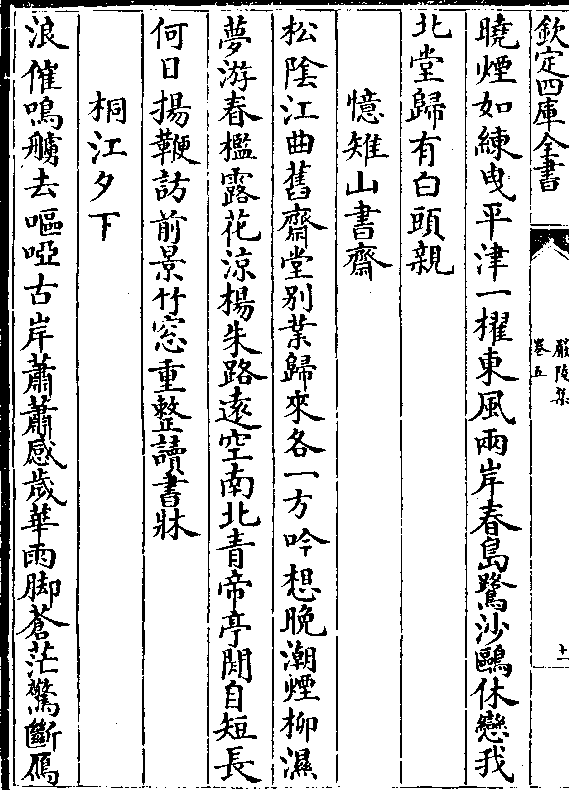 欽定四庫全書
嚴陵集
卷五
十一
曉煙如練曵平津一櫂東風兩岸春島鷺沙鷗休戀我
北堂歸有白頭親
憶雉山書齋
松陰江曲舊齋堂別業歸來各一方吟想晚潮煙柳濕
夢游春檻露花涼楊朱路遠空南北青帝亭閒自短長
何日揚鞭訪前景竹窓重整讀書牀
桐江夕下
浪催鳴艣去嘔啞古岸蕭蕭感歲華雨脚蒼茫驚斷鴈